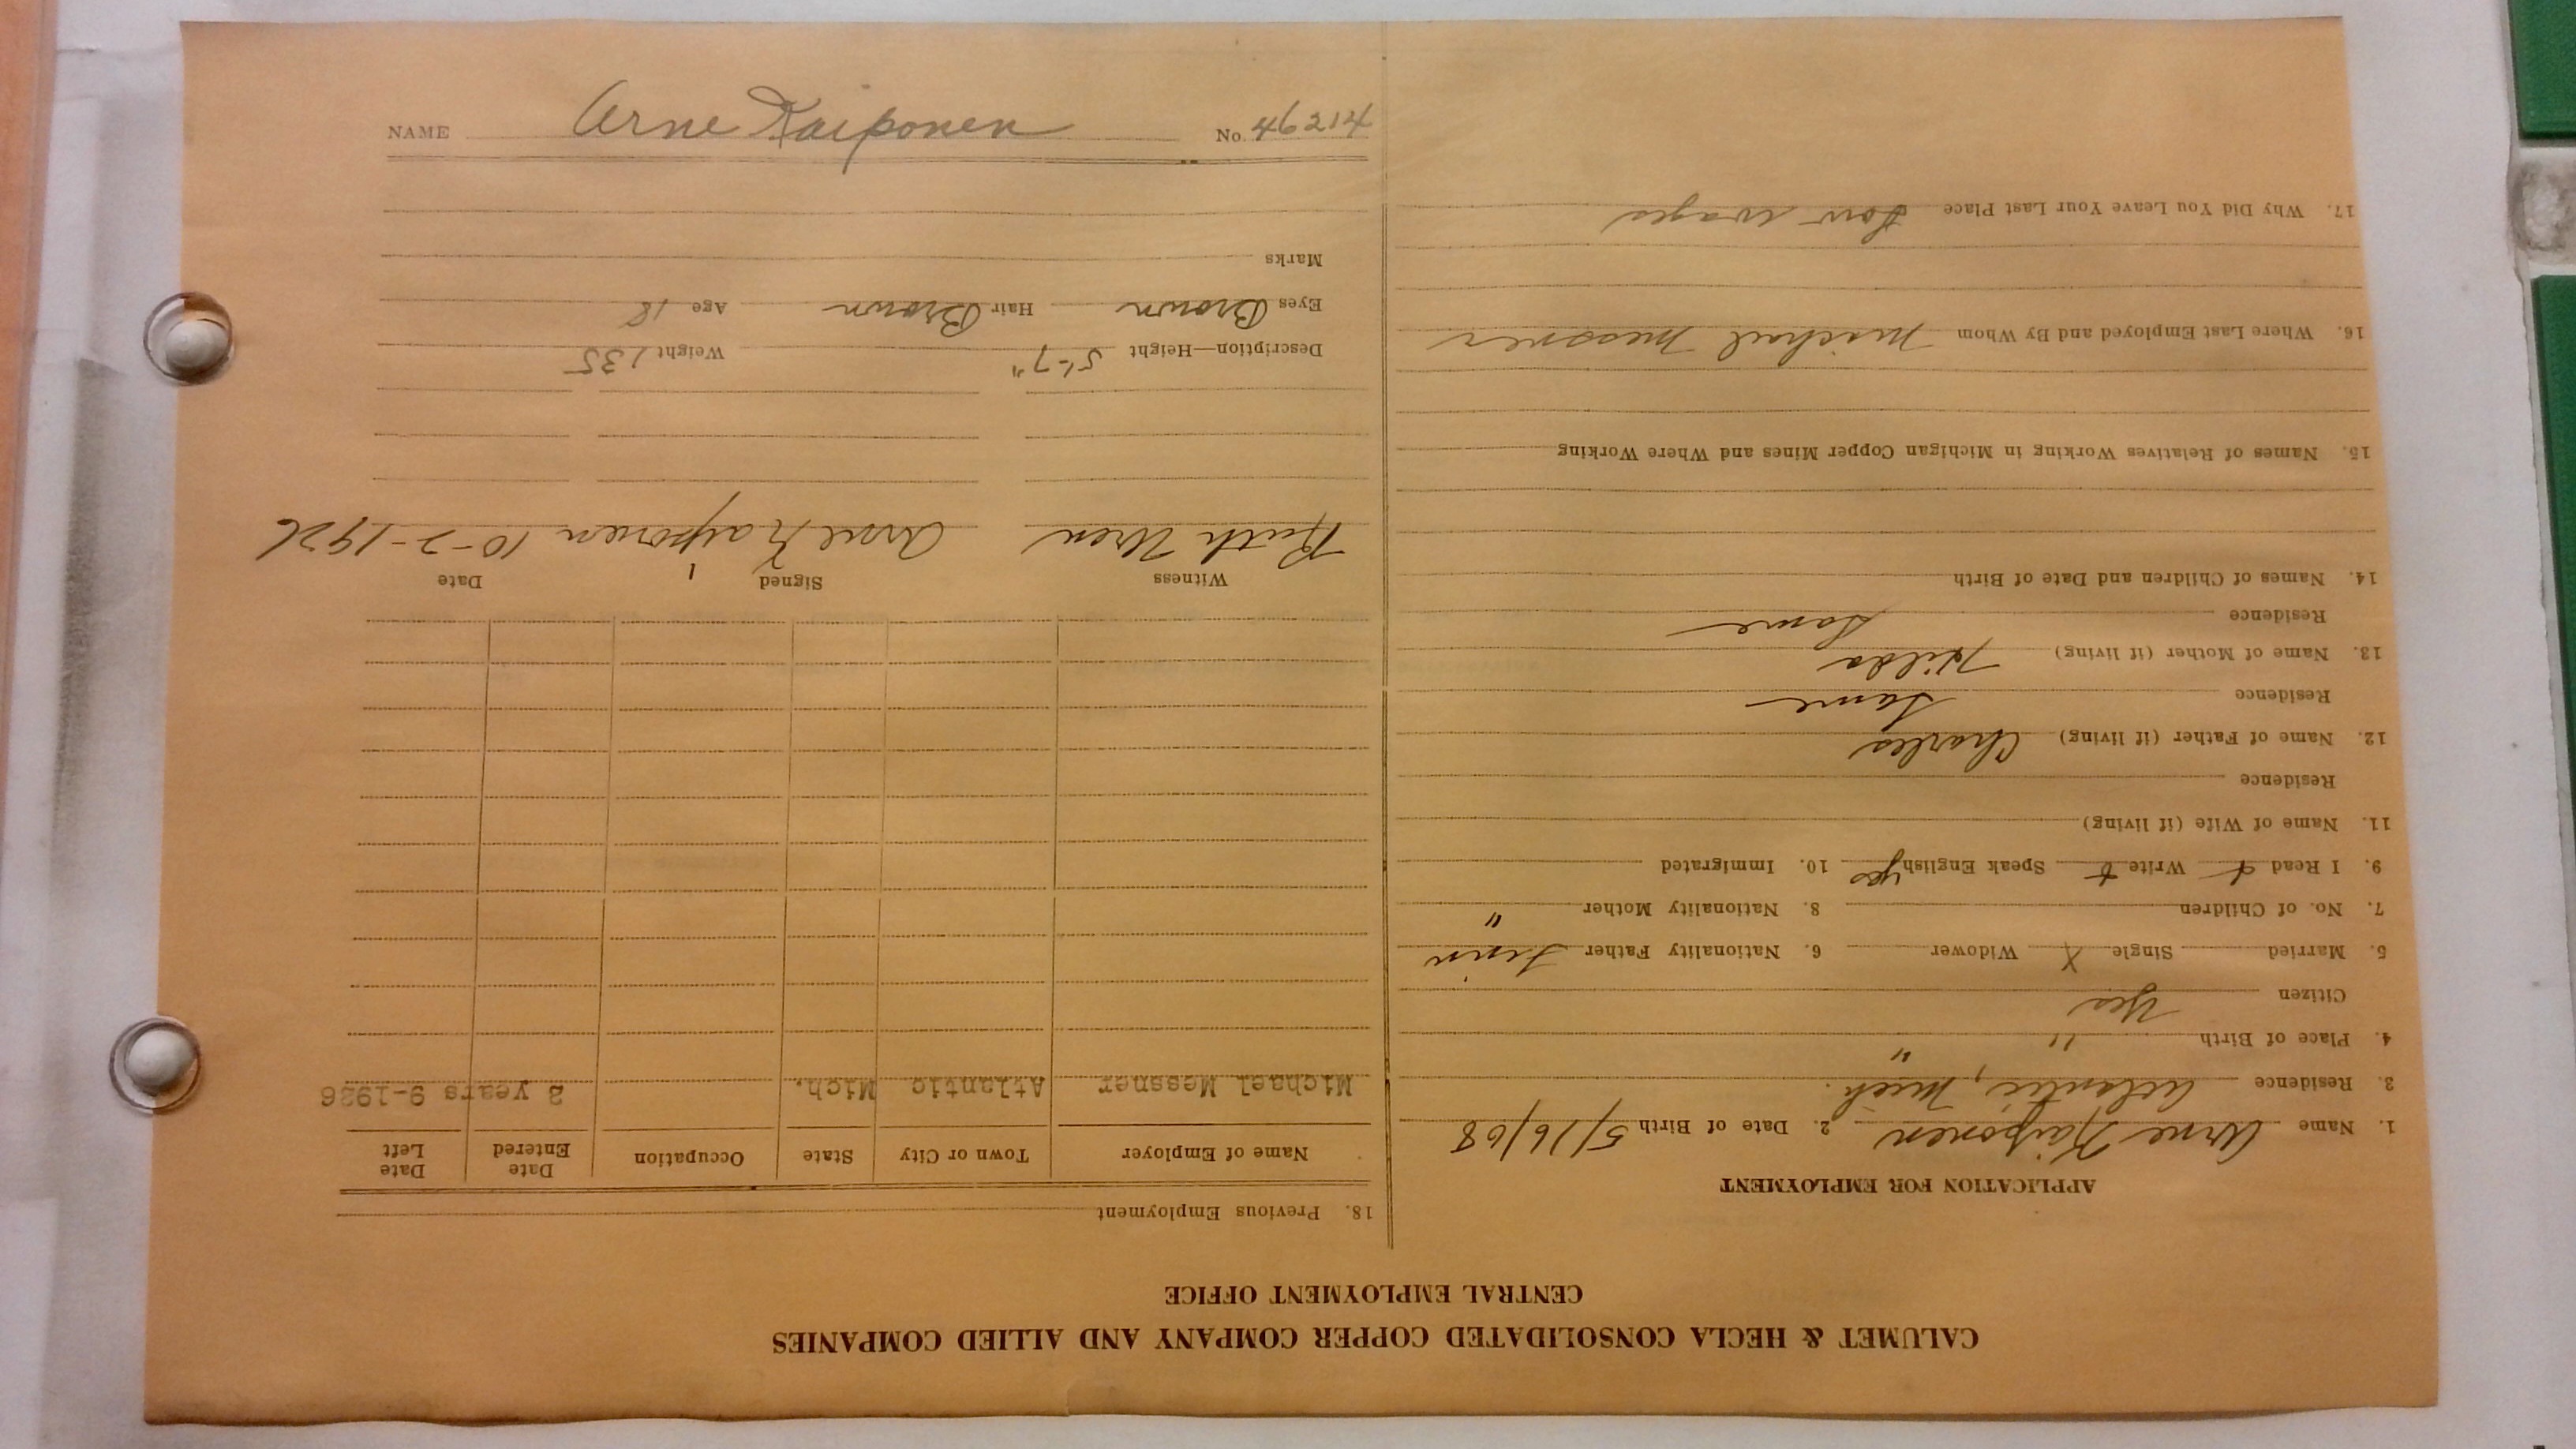 CALUMET & HECLA CONSOLIDATED COPPER COMPANY AND ALLIED COMPANIES
CENTRAL EMPLOYMENT OFFICE
APPLICATION FOR EMPLOYMENT
1. Name Arne Raiponen 2. Date of Birth 5/16/08
3. Residence Atlantic, Mich.
4. Place of Birth " "
Citizen Yes
5. Married Single X Widower 6. Nationality Father Finn
7. No. of Children 8. Nationality Mother "
9. I Read Write Speak English yes 10. Immigrated
11. Name of Wife (if living)
Residence
12. Name of Father (if living) Charles
Residence Same
13. Name of Mother (if living) Hilda
Residence Same
14. Names of Children and Date of Birth
15. Names of Relatives Working in Michigan Copper Mines and Where Working
16. Where Last Employed and By Whom Michael Messner
17. Why Did You Leave Your Last Place Low wages
18. Previous Employment
Name of Employer Town or City State Occupation Date Entered Date Left
Michael Messner Atlantic Mich. 2 years 9-1926
Witness Signed Date
Ruth Uren Arne Raiponen 10-2-1926
Description—Height 5'-7" Weight 135
Eyes Brown Hair Brown Age 18
Marks
NAME Arne Raiponen No. 46214